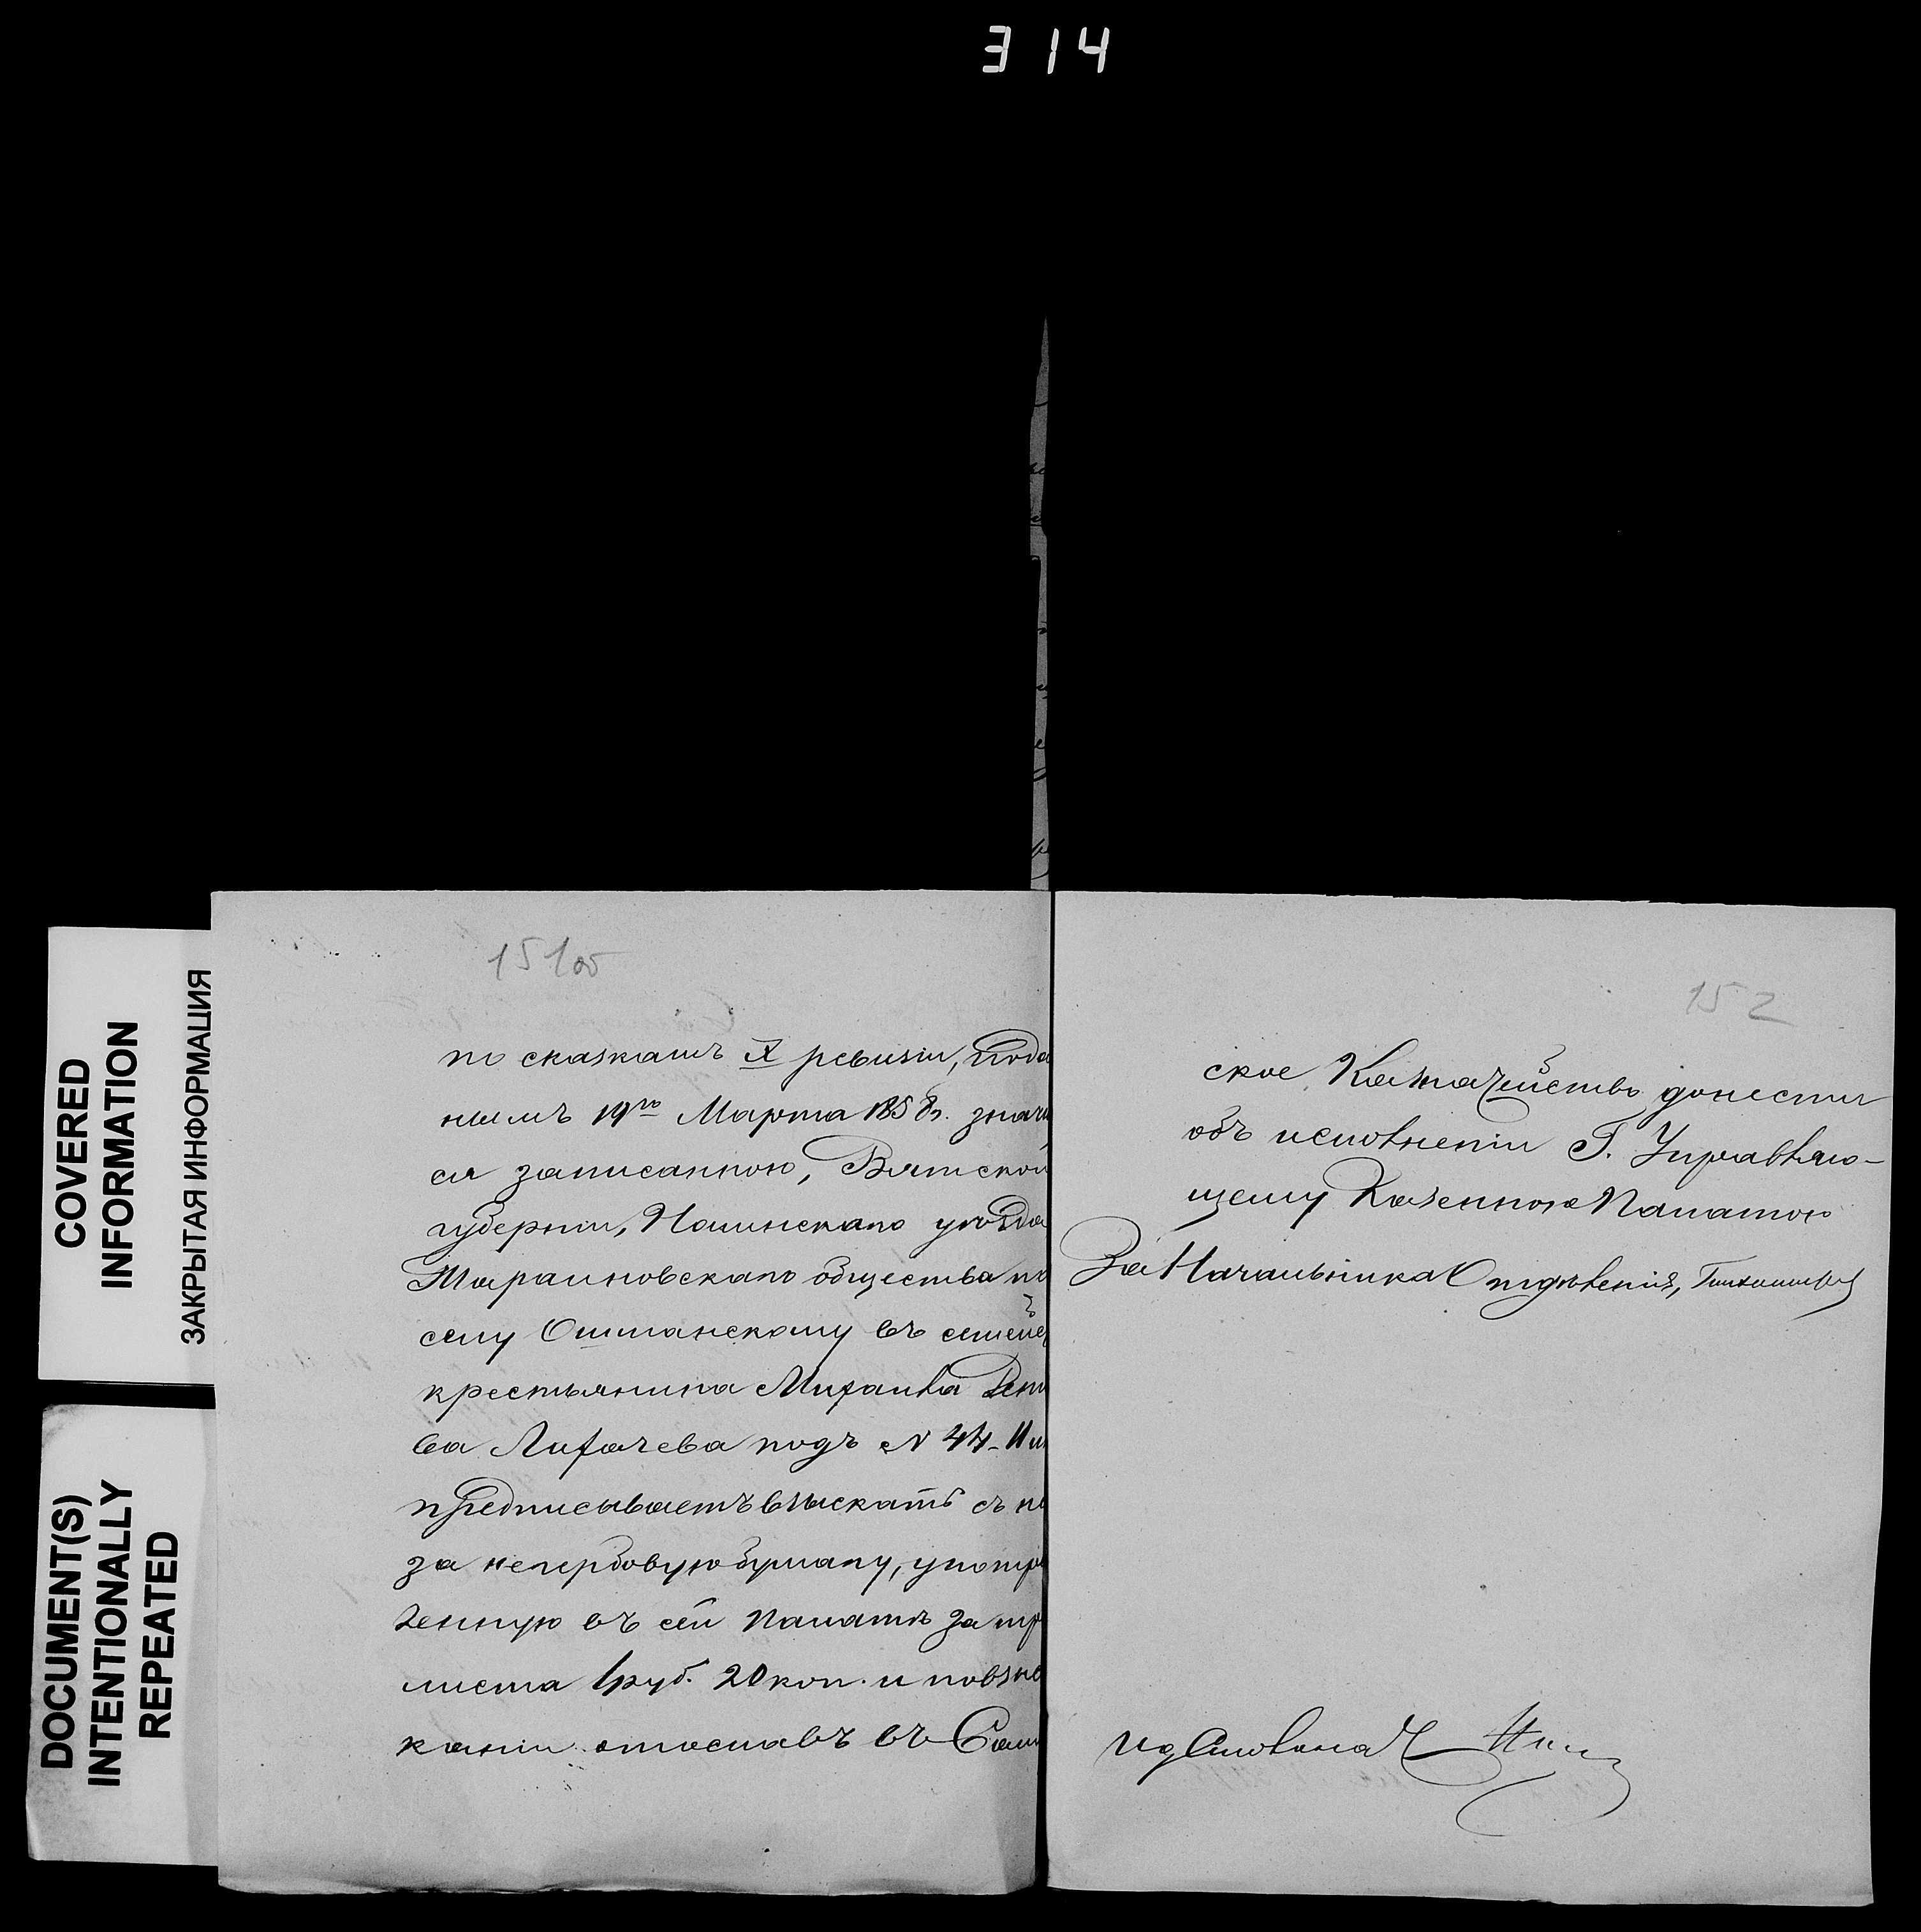 314
COVERED
INFORMATION
ЗАКРЫТАЯ ИНФОРМАЦИЯ
DOCUMENT(S)
INTENTIONALLY
REPEATED
151об
по сказкамъ X ревизіи, пода
нымъ 19го Марта 1858г. значи
ся записанною, Вятской
губерніи, Нолинскаго уѣзда
общества по
селу въ
крестьянина Михаила
ва Лихачева подъ N 44.
предписываетъ взыскать съ не
за негербовую бумагу, употре
ленную въ сей Палатѣ за тр
листа 1руб. 20коп. и по взыс
каніи отославъ въ
152
ское Казначейство донести
объ исполненіи Г. Управляю-
щему Казенною Палатою
За Начальника Отдѣленія,